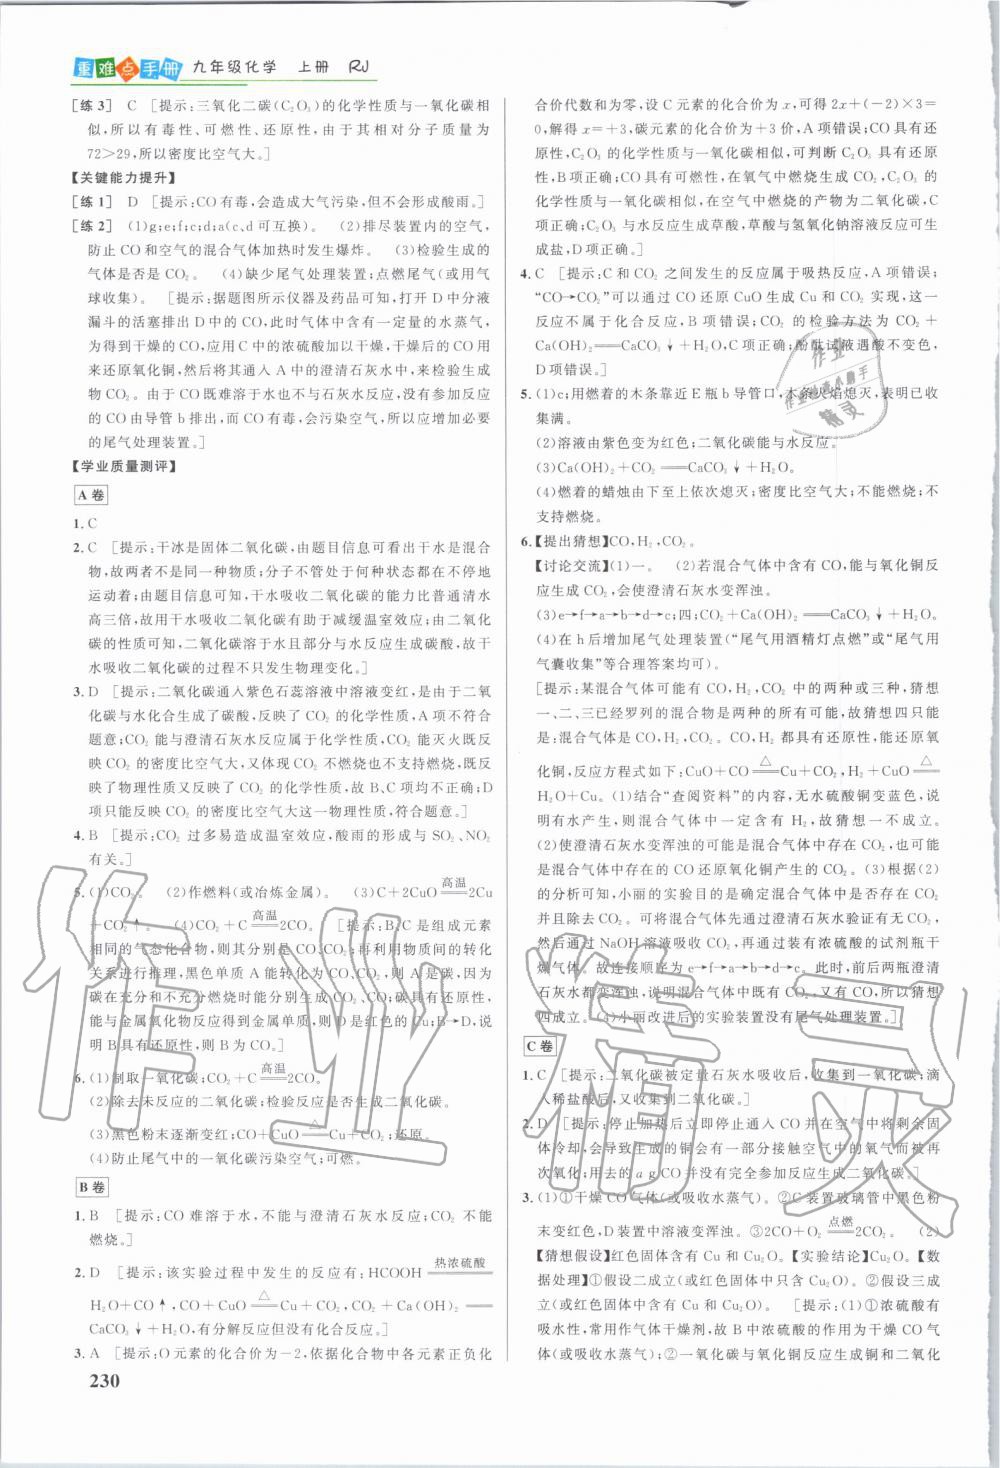 重难点手册 九年级化学 上册 RJ
[练3] C [提示:三氧化二碳(C₂O₃)的化学性质与一氧化碳相
似,所以有毒性、可燃性、还原性,由于其相对分子质量为
72>29,所以密度比空气大。]
【关键能力提升】
[练1] D [提示:CO有毒,会造成大气污染,但不会形成酸雨。]
[练2] (1)g;e;f;c;d;a(c、d可互换)。 (2)排尽装置内的空气,
防止CO和空气的混合气体加热时发生爆炸。 (3)检验生成的
气体是否是CO₂。 (4)缺少尾气处理装置;点燃尾气(或用气
球收集)。 [提示:据题图所示仪器及药品可知,打开D中分液
漏斗的活塞排出D中的CO,此时气体中含有一定量的水蒸气,
为得到干燥的CO,应用C中的浓硫酸加以干燥,干燥后的CO用
来还原氧化铜,然后将其通入A中的澄清石灰水中,来检验生成
物CO₂。由于CO既难溶于水也不与石灰水反应,没有参加反应
的CO由导管b排出,而CO有毒,会污染空气,所以应增加必要
的尾气处理装置。]
【学业质量测评】
A卷
1. C
2. C [提示:干冰是固体二氧化碳,由题目信息可看出干水是混合
物,故两者不是同一种物质;分子不管处于何种状态都在不停地
运动着;由题目信息可知,干水吸收二氧化碳的能力比普通清水
高三倍,故用干水吸收二氧化碳有助于减缓温室效应;由二氧化
碳的性质可知,二氧化碳溶于水且部分与水反应生成碳酸,故干
水吸收二氧化碳的过程不只发生物理变化。]
3. D [提示:二氧化碳通入紫色石蕊溶液中溶液变红,是由于二氧
化碳与水化合生成了碳酸,反映了CO₂的化学性质,A项不符合
题意;CO₂能与澄清石灰水反应属于化学性质;CO₂能灭火既反
映CO₂的密度比空气大,又体现CO₂不燃烧也不支持燃烧,既反
映了物理性质又反映了CO₂的化学性质,故B、C项均不对;D
项只能反映CO₂的密度比空气大这一物理性质,符合题意。]
4. B [提示:CO₂过多易造成温室效应,酸雨的形成与SO₂、NO₂
有关。]
5. (1)CO₂。 (2)作燃料(或冶炼金属)。 (3)C+2CuO 高温══ 2Cu
+CO₂↑。 (4)CO₂+C 高温══ 2CO。 [提示:B、C是组成元素
相同的气态化合物,则其分别是CO、CO₂;再利用物质间的转化
关系进行推理,黑色单质A能转化为CO、CO₂,则A是碳,因为
碳在充分和不充分燃烧时能分别生成CO₂、CO;碳具有还原性,
能与金属氧化物反应得到金属单质,则D是红色的Cu;B→D,说
明B具有还原性,则B为CO。]
6. (1)制取一氧化碳;CO₂+C 高温══ 2CO。
(2)除去未反应的二氧化碳;检验反应是否生成二氧化碳。
(3)黑色粉末逐渐变红;CO+CuO △══ Cu+CO₂;还原。
(4)防止尾气中的一氧化碳污染空气;可燃。
B卷
1. B [提示:CO难溶于水,不能与澄清石灰水反应;CO₂不能
燃烧。]
2. D [提示:该实验过程中发生的反应有:HCOOH 热浓硫酸══
H₂O+CO↑,CO+CuO △══ Cu+CO₂,CO₂+Ca(OH)₂══
CaCO₃↓+H₂O,有分解反应但无化合反应。]
3. A [提示:O元素的化合价为-2,依据化合物中各元素正负化
合价代数和为零,设C元素的化合价为x,可得2x+(-2)×3=
0,解得x=+3,碳元素的化合价为+3价,A项错误;CO具有还
原性,C₂O₃的化学性质与一氧化碳相似,可判断C₂O₃具有还原
性,B项正确;CO在氧气中燃烧生成CO₂,C₂O₃的
化学性质与一氧化碳相似,在空气中燃烧的产物为二氧化碳,C
项正确;C₂O₃与水反应生成草酸,草酸与氢氧化钠溶液反应可生
成盐,D项正确。]
4. C [提示:C和CO₂之间发生的反应属于吸热反应,A项错误;
“CO→CO₂”可以通过CO还原CuO生成Cu和CO₂实现,这一
反应不属于化合反应,B项错误;CO₂的检验方法为CO₂+
Ca(OH)₂══CaCO₃↓+H₂O,C项正确;酚酞试液遇酸不变色,
D项错误。]
5. (1)c;用燃着的木条靠近E瓶b导管口,木条火焰熄灭,表明已收
集满。
(2)溶液由紫色变为红色;二氧化碳能与水反应。
(3)Ca(OH)₂+CO₂══CaCO₃↓+H₂O。
(4)燃着的蜡烛由下至上依次熄灭;密度比空气大;不能燃烧;不
支持燃烧。
6. 【提出猜想】CO、H₂、CO₂。
【讨论交流】(1)一。 (2)若混合气体中含有CO,能与氧化铜反
应生成CO₂,会使澄清石灰水变浑浊。
(3)e→f→a→b→d→c;四;CO₂+Ca(OH)₂══CaCO₃↓+H₂O。
(4)在h后增加尾气处理装置(“尾气用酒精灯点燃”或“尾气用
气囊收集”等合理答案均可)。
[提示:某混合气体可能有CO、H₂、CO₂中的两种或三种,猜想
一、二、三已经罗列的混合物是两种的所有可能,故猜想四只能
是:混合气体是CO、CO₂、H₂。CO、H₂都具有还原性,能还原氧
化铜,反应方程式如下:CuO+CO △══ Cu+CO₂,H₂+CuO △══ Cu
+H₂O。 (1)结合“查阅资料”的内容,无水硫酸铜变蓝色,说
明有水产生,则混合气体中一定含有H₂,故猜想一不成立。
(2)使澄清石灰水变浑浊的可能是混合气体中存在CO₂,也可能
是混合气体中存在的CO还原氧化铜产生的。 (3)根据(2)
的分析可知,小丽的实验目的是确定混合气体中是否存在CO₂
并且除去CO₂。可将混合气体先通过澄清石灰水验证有无CO₂,
然后通过NaOH溶液吸收CO₂,再通过装有浓硫酸的试剂瓶干
燥气体。故连接顺序为e→f→a→b→d→c。此时,前后两瓶澄清
石灰水都变浑浊,说明混合气体中既有CO₂又有CO,所以猜想
四成立。 (4)小丽改进后的实验装置没有尾气处理装置。]
C卷
1. C [提示:二氧化碳被定量石灰水吸收后,收集到一氧化碳;滴
入稀盐酸后,又收集到二氧化碳。]
2. D [提示:停止加热后立即停止通入CO并在空气中将剩余固
体冷却,会导致生成的铜会有一部分接触空气中的氧气而被再
次氧化;用去的a g CO并没有完全参加反应生成二氧化碳。]
3. (1)①干燥CO气体(或吸收水蒸气)。②C装置玻璃管中黑色粉
末变红色,D装置中溶液变浑浊。③2CO+O₂ 点燃══ 2CO₂。 (2)
【猜想假设】红色固体含有Cu和Cu₂O。【实验结论】Cu₂O。【数
据处理】①假设二成立(或红色固体中只含Cu₂O)。②假设三成
立(或红色固体中含有Cu和Cu₂O)。 [提示:(1)①浓硫酸有
吸水性,常用作气体干燥剂,故B中浓硫酸的作用为干燥一氧
化碳(或吸收水蒸气);②一氧化碳与氧化铜反应生成铜和二氧化
230
作业精灵
作业
作业检查小助手
精灵